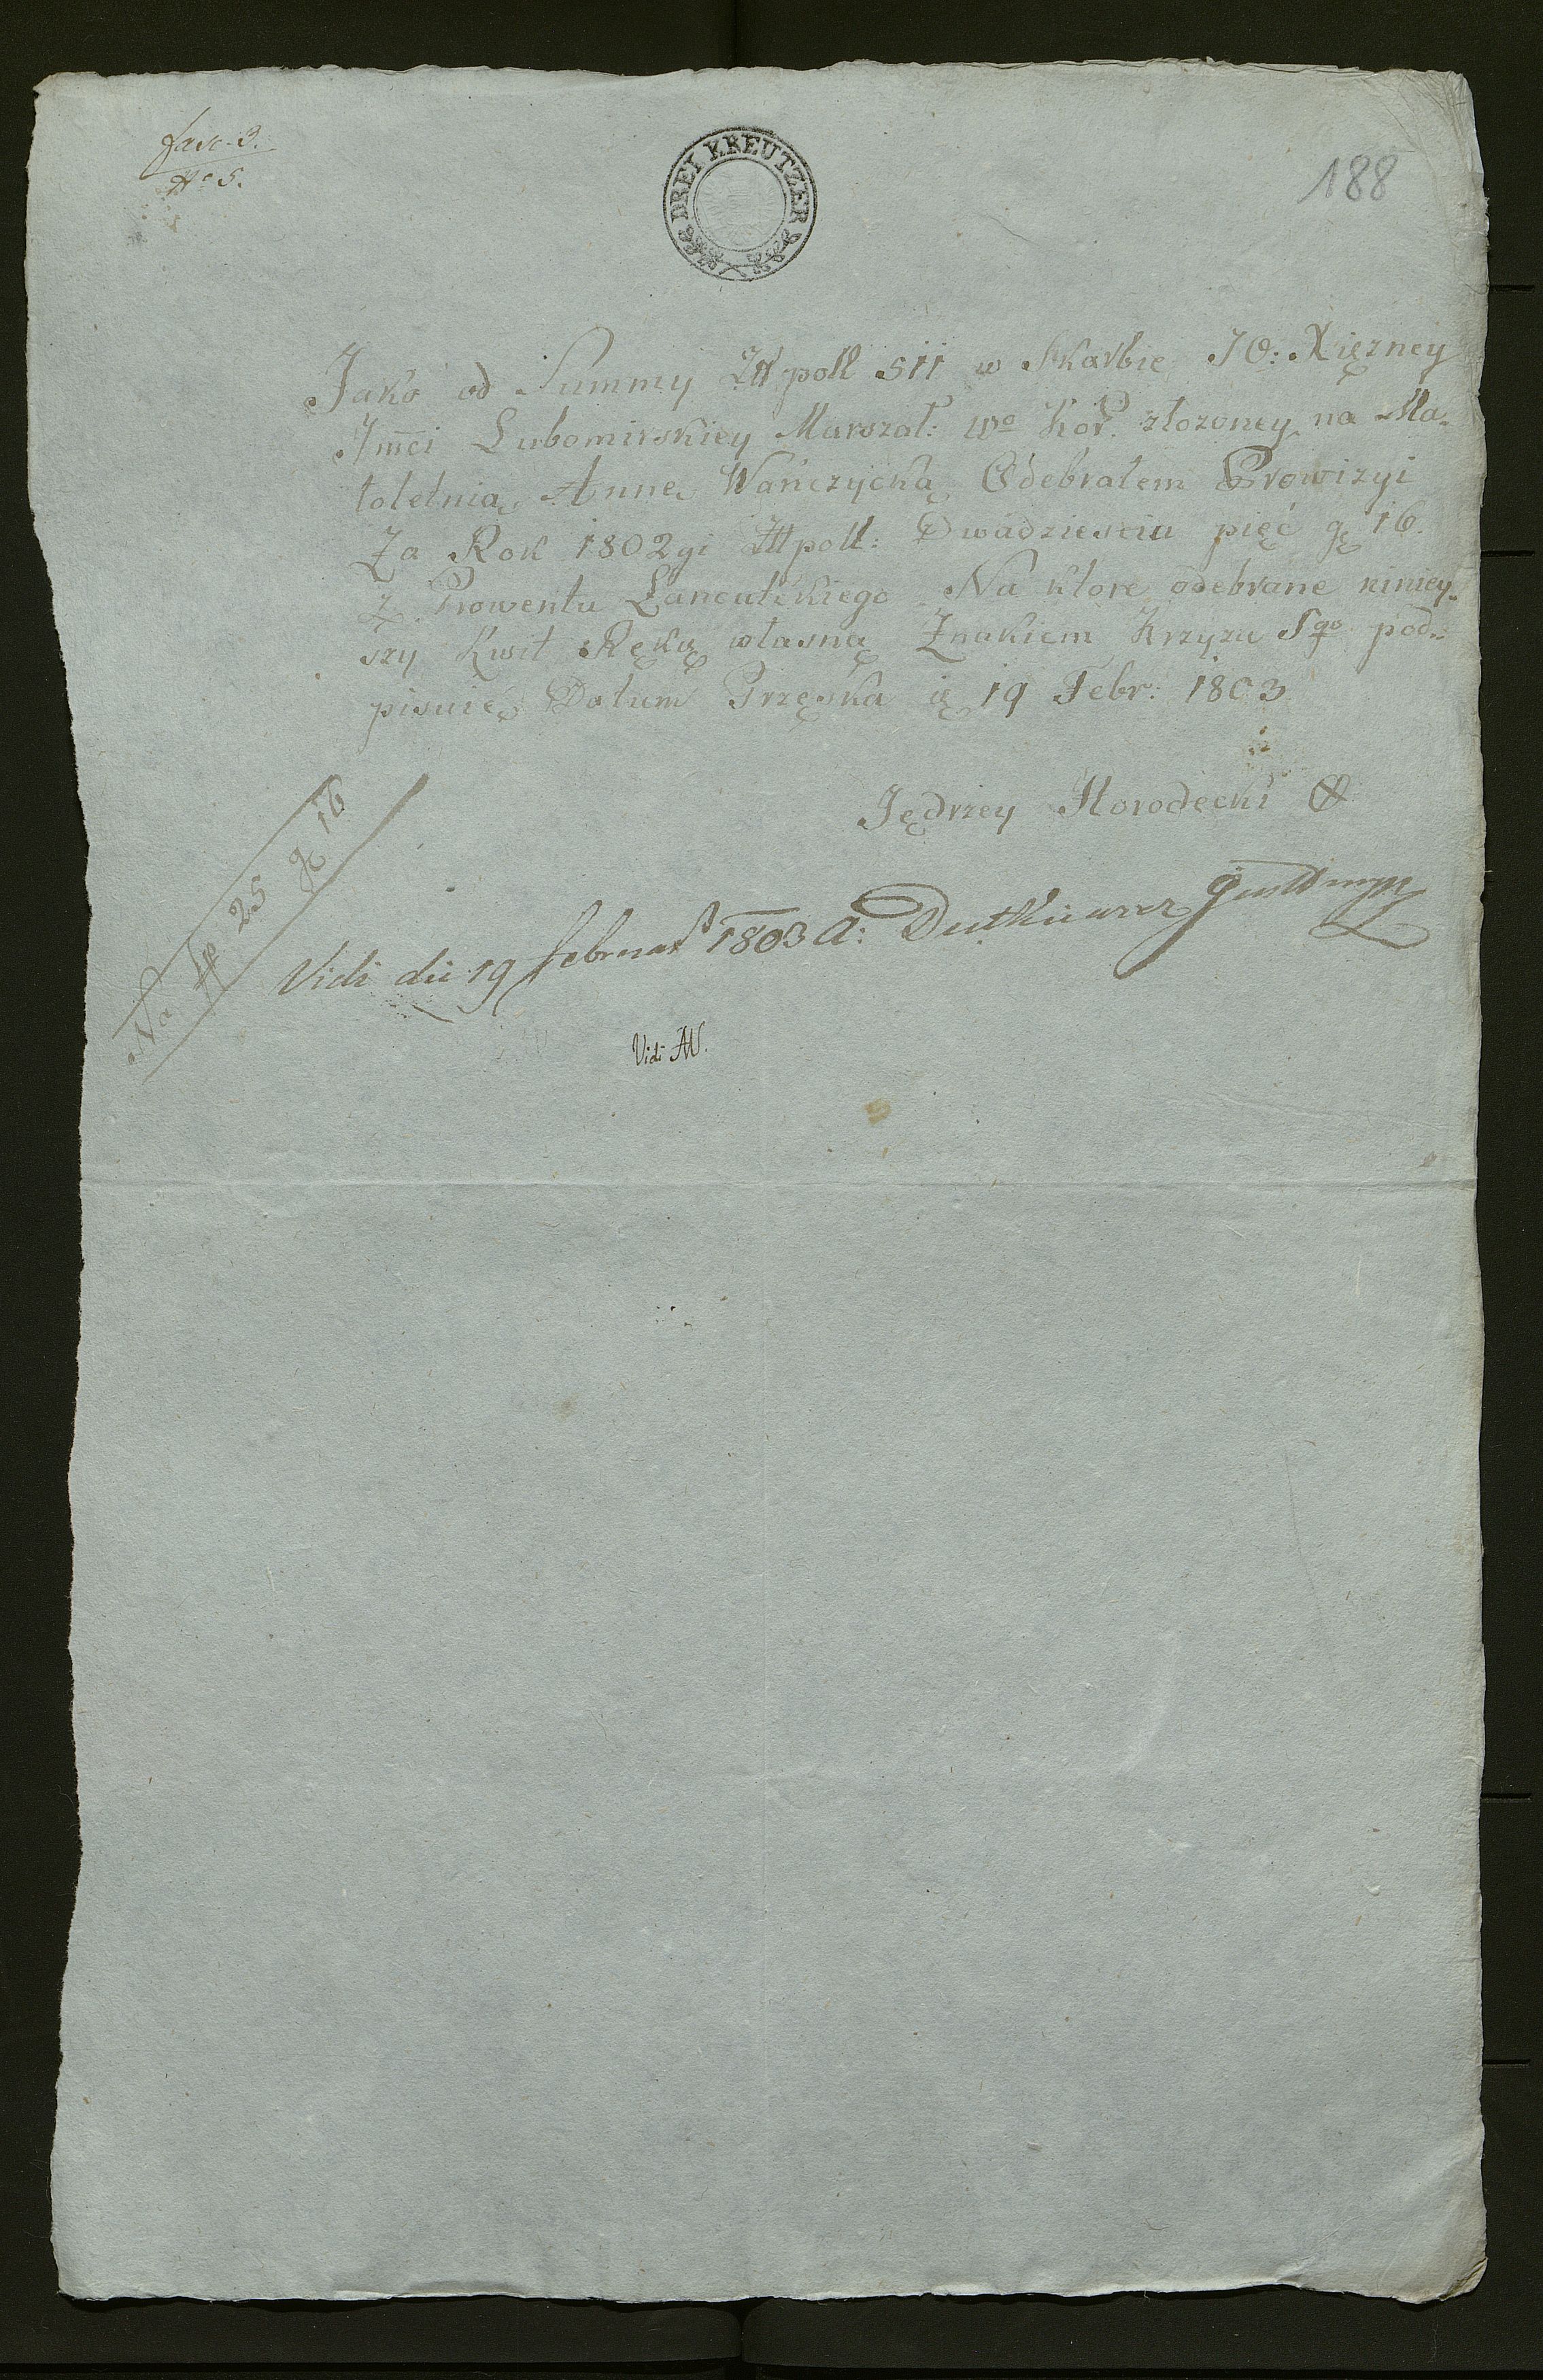 fasc. 3.
No 5.
DREI KREUTZER
188
Jako od Summy Złłpoll 511 w Skarbie JO: Xiężney
Jmci Lubomirskiey Marszał: Wo Kor. złozoney na Ma-
łoletnią Annę Wańczycką Odebrałem Prowizyi
Za Rok 1802gi Złłpoll: Dwadziescia pięć gę 16.
z Prowentu Łancutskiego Na ktore odebrane niniey-
szy Kwit Ręką własną Znakiem Krzyza Sgo pod-
pisuię Datum Przęska ię 19 Febr: 1803
Jędrzey Horodecki
Na fp 25 g 16
Vidi die 19 februar 1803 A: Dutkiewicz
Vidi AW.